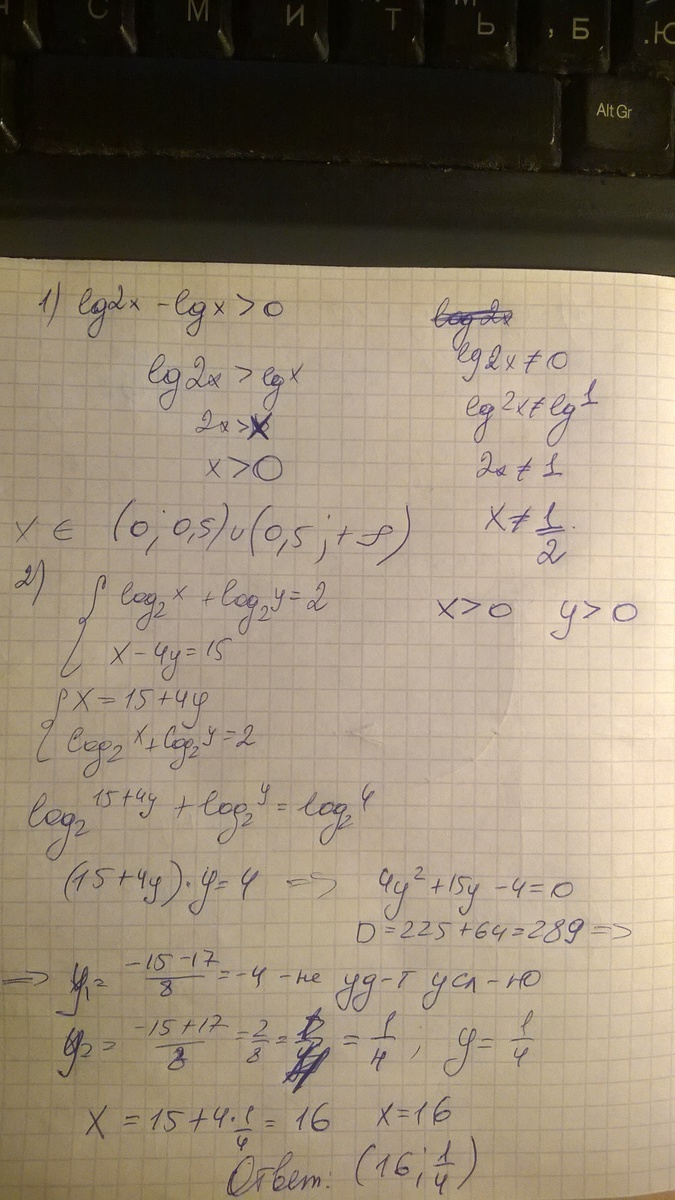 С М И Т Ь , Б . Ю
Alt Gr
1) lg2x - lgx > 0
lg2x > lgx
2x > x
x > 0
lg2x ≠ 0
lg2x ≠ lg1
2x ≠ 1
x ≠ 1/2.
x ∈ (0; 0,5) ∪ (0,5; +∞)
2) { log₂x + log₂y = 2
x - 4y = 15
x > 0 y > 0
{ x = 15 + 4y
log₂x + log₂y = 2
log₂15+4y + log₂y = log₂4
(15+4y)·y = 4 => 4y² + 15y - 4 = 0
D = 225 + 64 = 289 =>
=> y₁ = (-15-17)/8 = -4 - не уд-т усл-ю
y₂ = (-15+17)/8 = 2/8 = 1/4 ; y = 1/4
x = 15 + 4·1/4 = 16 x = 16
Ответ: (16; 1/4)